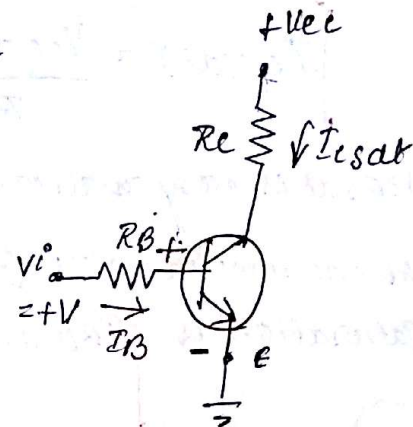 +Vcc
Rc
Icsat
RB
+
Vi
=+V
IB
-
E